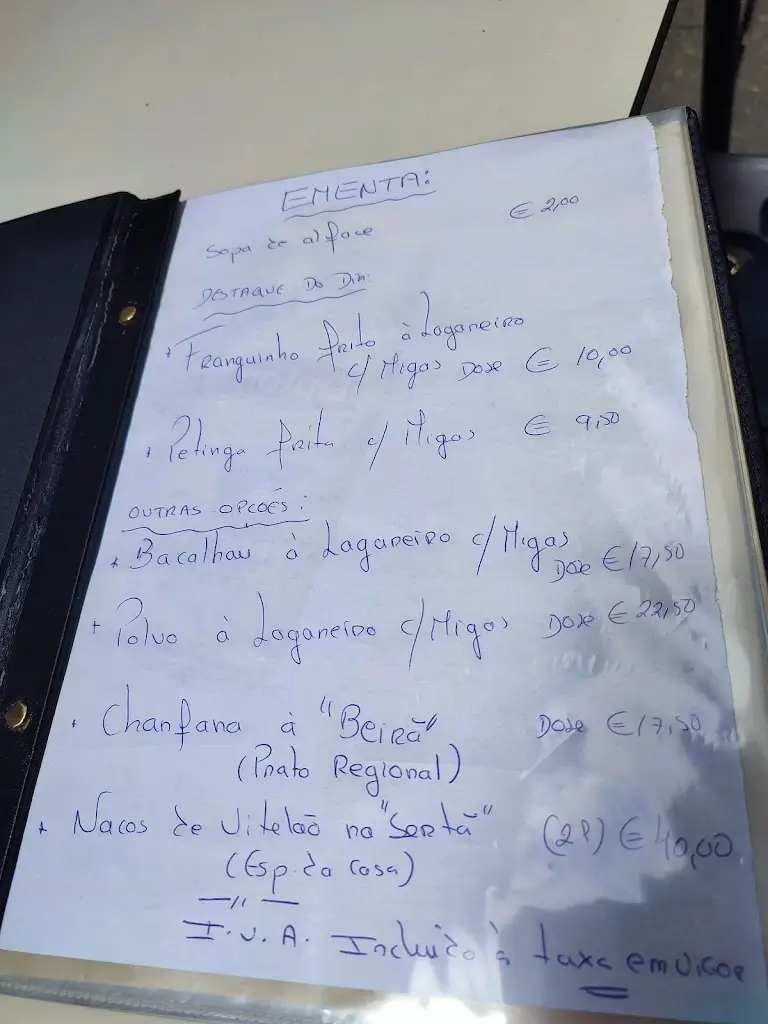 EMENTA:
Sopa de alface € 2,00
DESTAQUE DO DIA:
Franguinho frito à Lagareiro
c/ Migas Dose € 10,00
Petinga frita c/ Migas € 9,50
OUTRAS OPCOÊS:
Bacalhau à Lagareiro c/Migas
Dose € 17,50
Polvo à Lagareiro c/Migas Dose € 22,50
Chanfana à "Beirã" Dose € 17,50
(Prato Regional)
Nacos de Vitelão na "Sertã" (2P) € 40,00
(Esp. da Casa)
—//—
I.V.A. Incluido à taxa em vigor